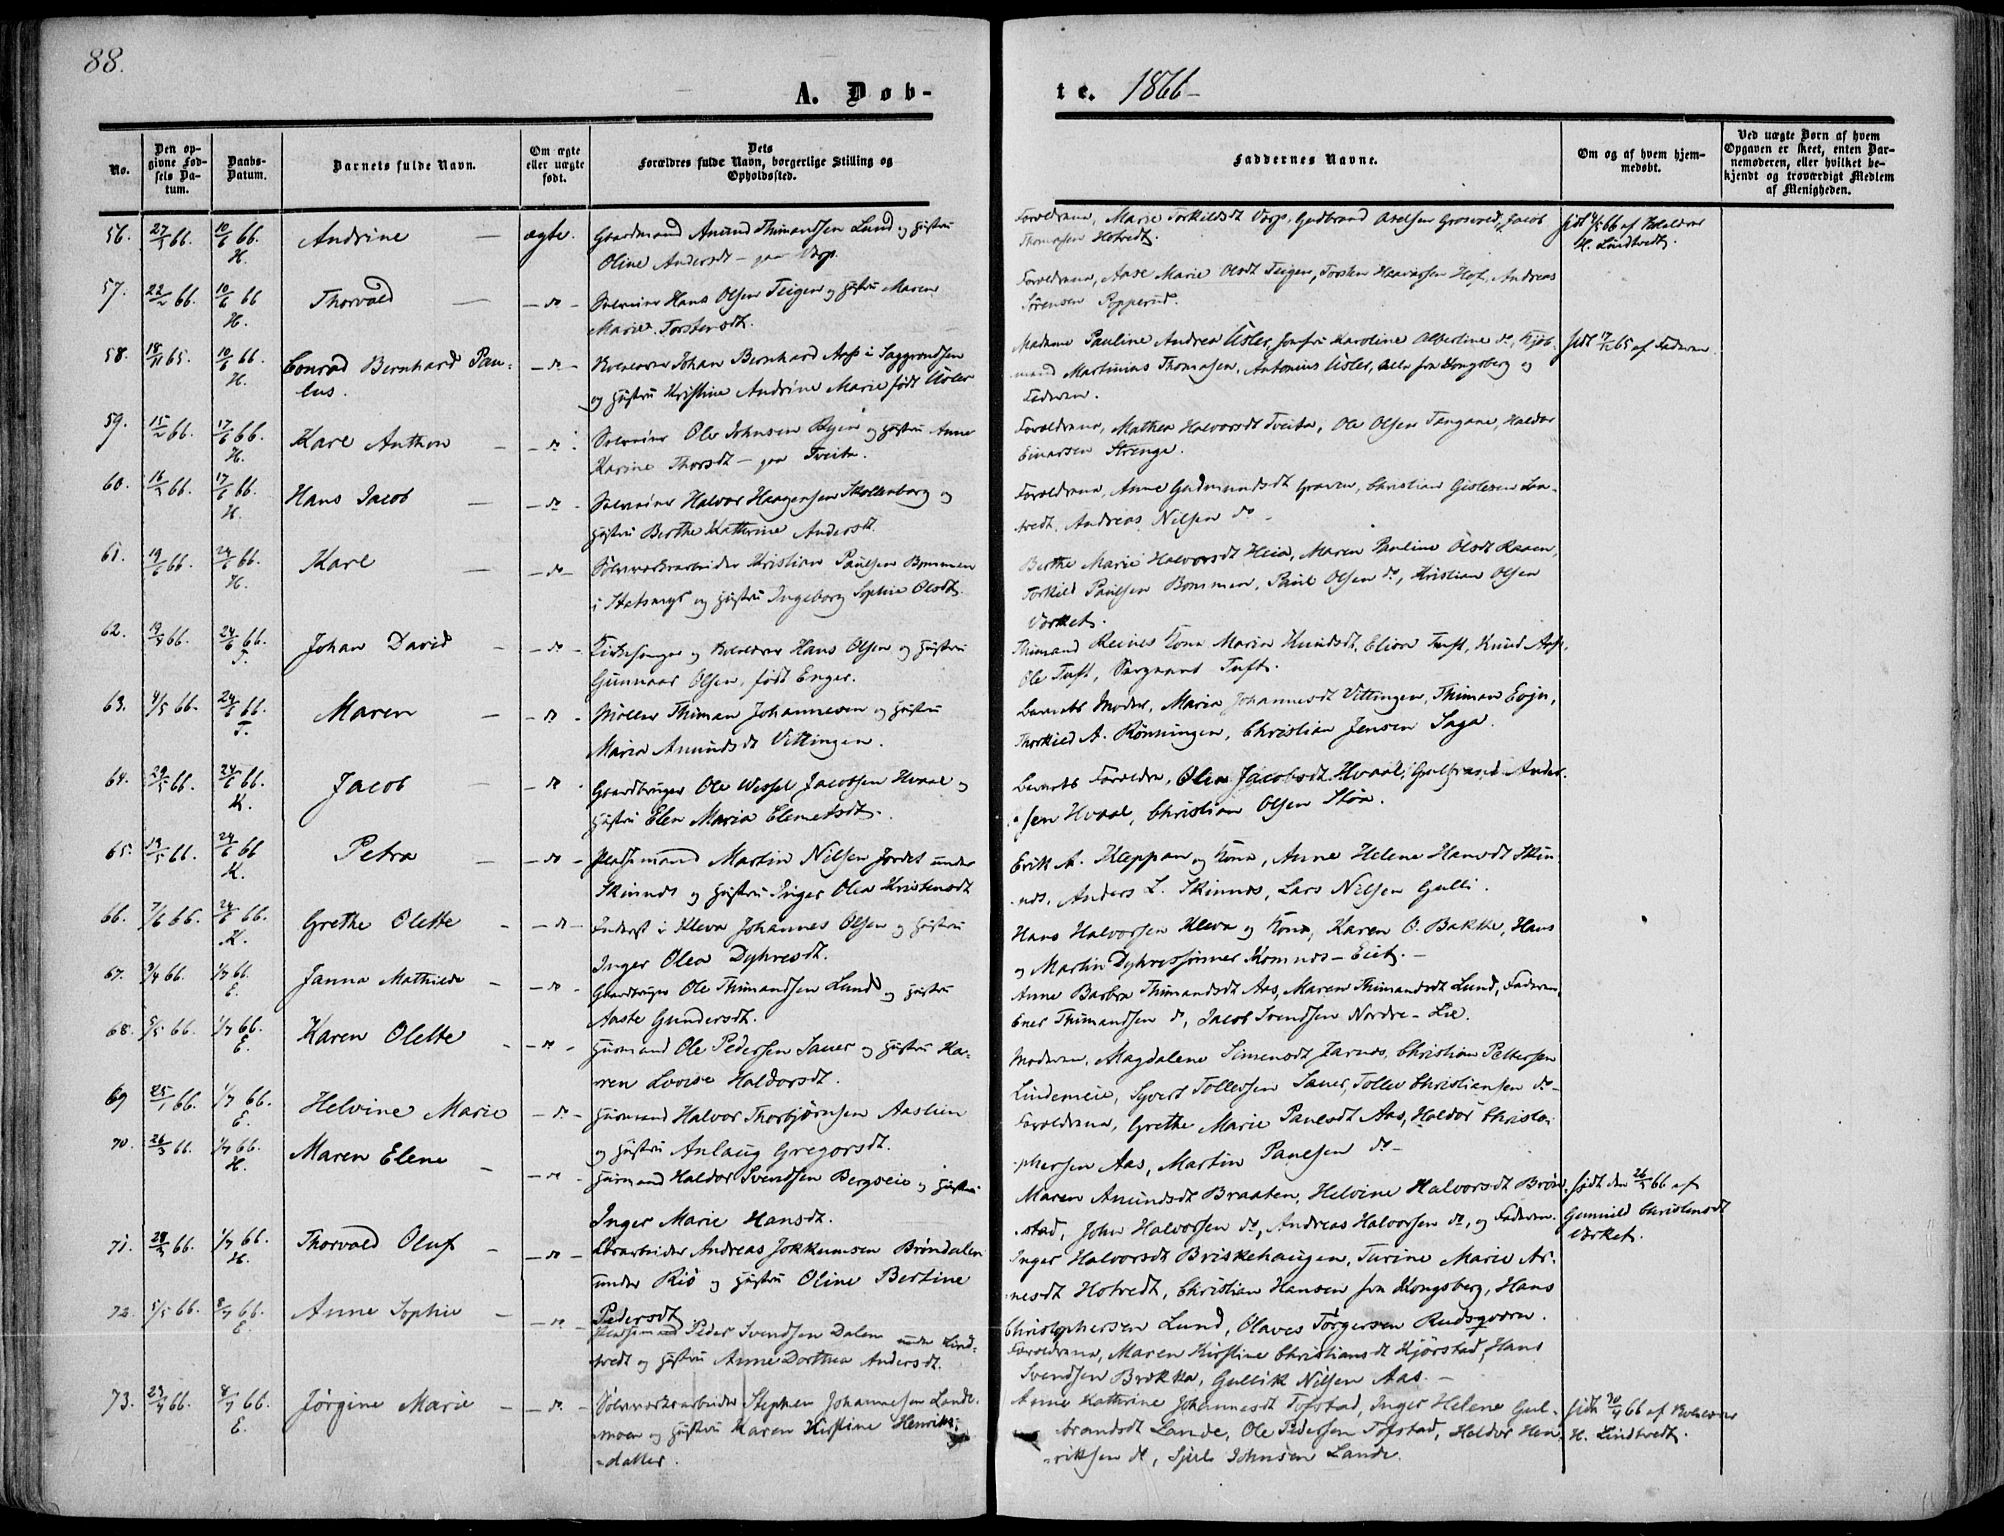 88.
A. Døb-
te. 1866-
No.
Den op-
givne Fød-
sels Da-
tum.
Daabs-
Datum.
Barnets fulde Navn.
Om ægte
eller uægte
født.
Dets
Forældres fulde Navn, borgerlige Stilling og
Opholdssted.
Faddernes Navne.
Om og af hvem hjem-
medøbt.
Ved uægte Børn af hvem
Opgaven er skeet, enten Bar-
nemoderen, eller hvilket be-
kjendt og troværdigt Medlem
af Menigheden.
56. 27/3 66. 10/6 66. H. Andrine — ægte. Gaardmand Amund Thimandsen Lund og Hustru
Oline Andersdt - paa Varp.
Forældrene, Marie Torkildsdt Varp, Gudbrand Axelsen Grosvold, Jacob
Thomassen Hotvedt.
H. Lindtvedt.
57. 22/2 66. 10/6 66 H. Thorvald — do - Hans Olsen Teigen og Hustru Maren
Marie Torstensdt.
Forældrene, Aase Marie Olsdt Teigen, Torsten Haavorsen Hof, Andreas
Sørensen Popperud.
58. 18/11 65. 10/6 66. H. Conrad Bernhard Pau-
lus. - do - Johan Bernhard Aas i Saggrendsen
og Hustru Kristine Andrine Marie født Üsler
Madame Pauline Andrea Üsler, Jomfru Karoline Albertine do, Kjøb-
mand Martinius Thomasen, Antonius Üsler, Alle fra Kongsberg og
Faderen.
af Faderen.
59. 15/2 66. 17/6 66. H. Karl Anthon - do - Ole Johnsen Byin og Hustru Anne
Karine Thorsdt - paa Tveita.
Forældrene, Mathea Halvorsdt Tveita, Ole Olsen Tangane, Haldor
Einarsen Strenge.
60. 16/3 66. 17/6 66. H. Hans Jacob — do - Halvor Haagensen Skollenborg og
Hustru Berthe Kathrine Andersdt.
Forældrene, Anne Gudmundsdt Graven, Christian Gislesen Lin-
tvedt, Andreas Nilsen do -
61. 19/6 66. 24/6 66. H. Karl — do - Sølvværksarbeider Kristian Paulsen Bommen
i Hatsmyr og Hustru Ingeborg Sophie Olsdt.
Berthe Marie Halvorsdt Heia, Maren Pauline Olsdt Raaen,
Torkild Paulsen Bommen, Paul Olsen do, Kristian Olsen
Værket.
62. 19/4 66. 24/6 66. T. Johan David - do - Kirkesanger og Hans Olsen og Hustru
Gunnaar Olsen, født Enger.
Thimand Reines Kone Maria Knudsdt, Eliom Tuft, Knud Aas,
Ole Tuft, Sergeant Tuft.
63. 4/5 66. 24/6 66. T. Maren - do - Møller Thiman Johannesen og Hustru
Maria Amundsdt Vittingen.
Barnets Moder, Maria Johannesdt Vittingen, Thiman Evju,
Thorkild A. Rønningen, Christian Jensen Saga.
64. 29/5 66. 24/6 66. K. Jacob - do - Gaardbruger Ole Wessel Jacobsen Hvaal og
Hustru Elen Maria Clemetsdt.
Barnets Forældre, Olea Jacobsdt Hvaal, Gulbrand Ander-
sen Hvaal, Christian Olsen Støa.
65. 19/5 66. 24/6 66 K. Petra - do - Pladsmand Martin Nilsen Jordet under
Skinnes og Hustru Inger Olea Kristensdt
Erik A. Kleppan og Kone, Anne Helene Hansdt Skin-
nes, Anders L. Skinnes, Lars Nilsen Gulli.
66. 7/6 66. 24/6 66. K. Grethe Olette - do - Inderst i Kleva Johannes Olsen og Hustru
Inger Olea Dyhresdt.
Hans Halvorsen Kleva og Kone, Karen O. Bakke, Hans
og Martin Dyhressønner Komnes-Eiet. -
67. 3/4 66. 1/7 66. E. Janna Mathilde - do - Gaardbruger Ole Thimandsen Lund og Hustru
Aaste Gundersdt.
Anne Barbra Thimandsdt Aas, Maren Thimandsdt Lund, Faderen,
Ener Thimandsen do, Jacob Svendsen Nordre-Lie.
68. 5/5 66. 1/7 66. E. Karen Olette - do - Huusmand Ole Pedersen Sauer og Hustru Ka-
ren Lovise Haldorsdt.
Moderen, Magdalene Simensdt Jarnes, Christian Pettersen
Lindemeie, Syvert Tollefsen Sauer, Tollev Christiansen do -
69 25/1 66. 1/7 66. E. Helvine Marie - do - Huusmand Halvor Thorbjørnsen Aaslien
og Hustru Anlaug Gregorsdt.
Forældrene, Grethe Marie Paulsdt Aas, Haldor Christo-
phersen Aas, Martin Paulsen do -
70. 26/3 66. 1/7 66. H. Maren Elene - do - Huusmand Haldor Svendsen Bergseie og Hustru
Inger Marie Hansdt.
Maren Amundsdt Braaten, Helvine Halvorsdt Brøn-
stad, John Halvorsen do, Andreas Halvorsen do, og Faderen.
født den 26/3 66 af
Gunnild Christensdt
Værket.
71. 29/3 66. 1/7 66. H. Thorvald Oluf - do - Andreas Jokkumsen Brøndalen
under Riis og Hustru Oline Bertine
Pedersdt
Inger Halvorsdt Briskehaugen, Turine Marie Ar-
nesdt Hotvedt, Christian Hansen fra Kongsberg, Hans
Christophersen Lund, Olaves Tørgersen Rudsqværn.
72. 5/5 66. 8/7 66. E. Anne Sophie - do - Pladsmand Peder Svendsen Dalen under Lind-
tvedt og Hustru Anne Dorthea Andersdt.
Forældrene, Maren Kirstine Christiansdt Kjørstad, Hans
Svendsen Brekka, Gullik Nilsen Aas. -
73. 23/4 66. 8/7 66. E. Jørgine Marie - do - Sølvværksarbeider Stephen Johannesen Lande-
moen og Hustru Karen Kirstine Henriks-
datter.
Anne Kathrine Johannesdt Tofstad, Inger Helene Gul-
brandsdt Lande, Ole Pedersen Tofstad, Haldor Hen-
riksen do, Sjul Johnsen Lande.
H. Lindtvedt.